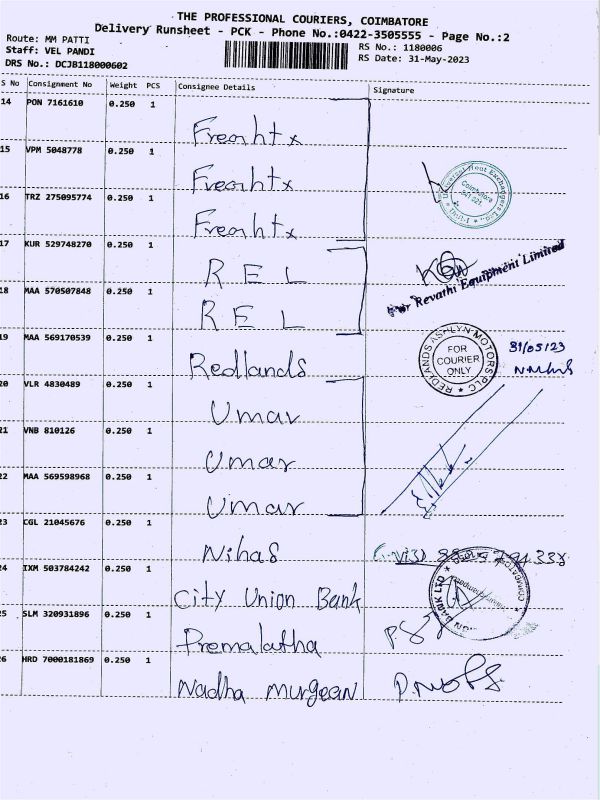 THE PROFESSIONAL COURIERS, COIMBATORE
Delivery Runsheet - PCK - Phone No.:0422-3505555 - Page No.:2
Route: MM PATTI
Staff: VEL PANDI
DRS No.: DCJB118000602
RS No.: 1180006
RS Date: 31-May-2023
S No Consignment No Weight PCS Consignee Details Signature
14 PON 7161610 0.250 1
15 VPM 5048778 0.250 1
16 TRZ 275095774 0.250 1
Universal Heat Exchangers Ltd.
Coimbatore
641 021.
Unit-I
17 KUR 529748270 0.250 1 R E L
For Revathi Equipment Limited
18 MAA 570507848 0.250 1 R E L
19 MAA 569170539 0.250 1 Redlands
REDLANDS ASHLYN MOTORS PLC
FOR
COURIER
ONLY
31/05/23
20 VLR 4830489 0.250 1 Umar
21 VNB 810126 0.250 1 Umar
22 MAA 569598968 0.250 1 Umar
23 CGL 21045676 0.250 1 Nihas
24 IXM 503784242 0.250 1 City Union Bank
BANK LTD
25 SLM 320931896 0.250 1 Premalatha
26 HRD 7000181869 0.250 1 Nadha Murgean